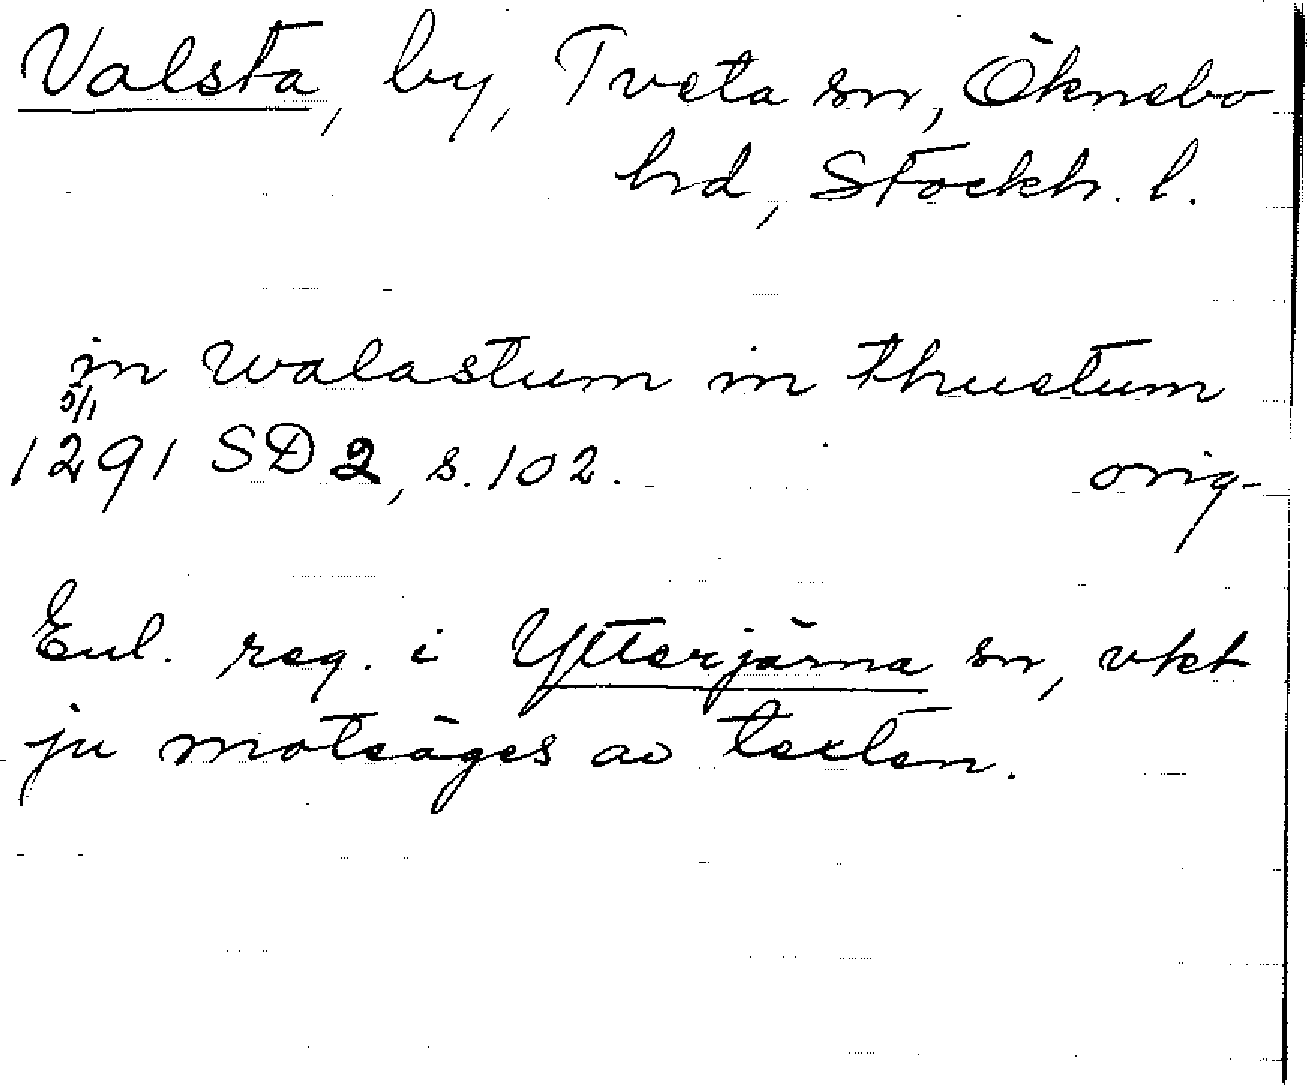 Valsta, by, Tveta sn, Öknebo
hd, Stockh. l.
in walastum in thuetum
5/1
1291 SD 2, s. 102. orig.
Enl. reg. i Ytterjärna sn, vket
ju motsäges av texten.